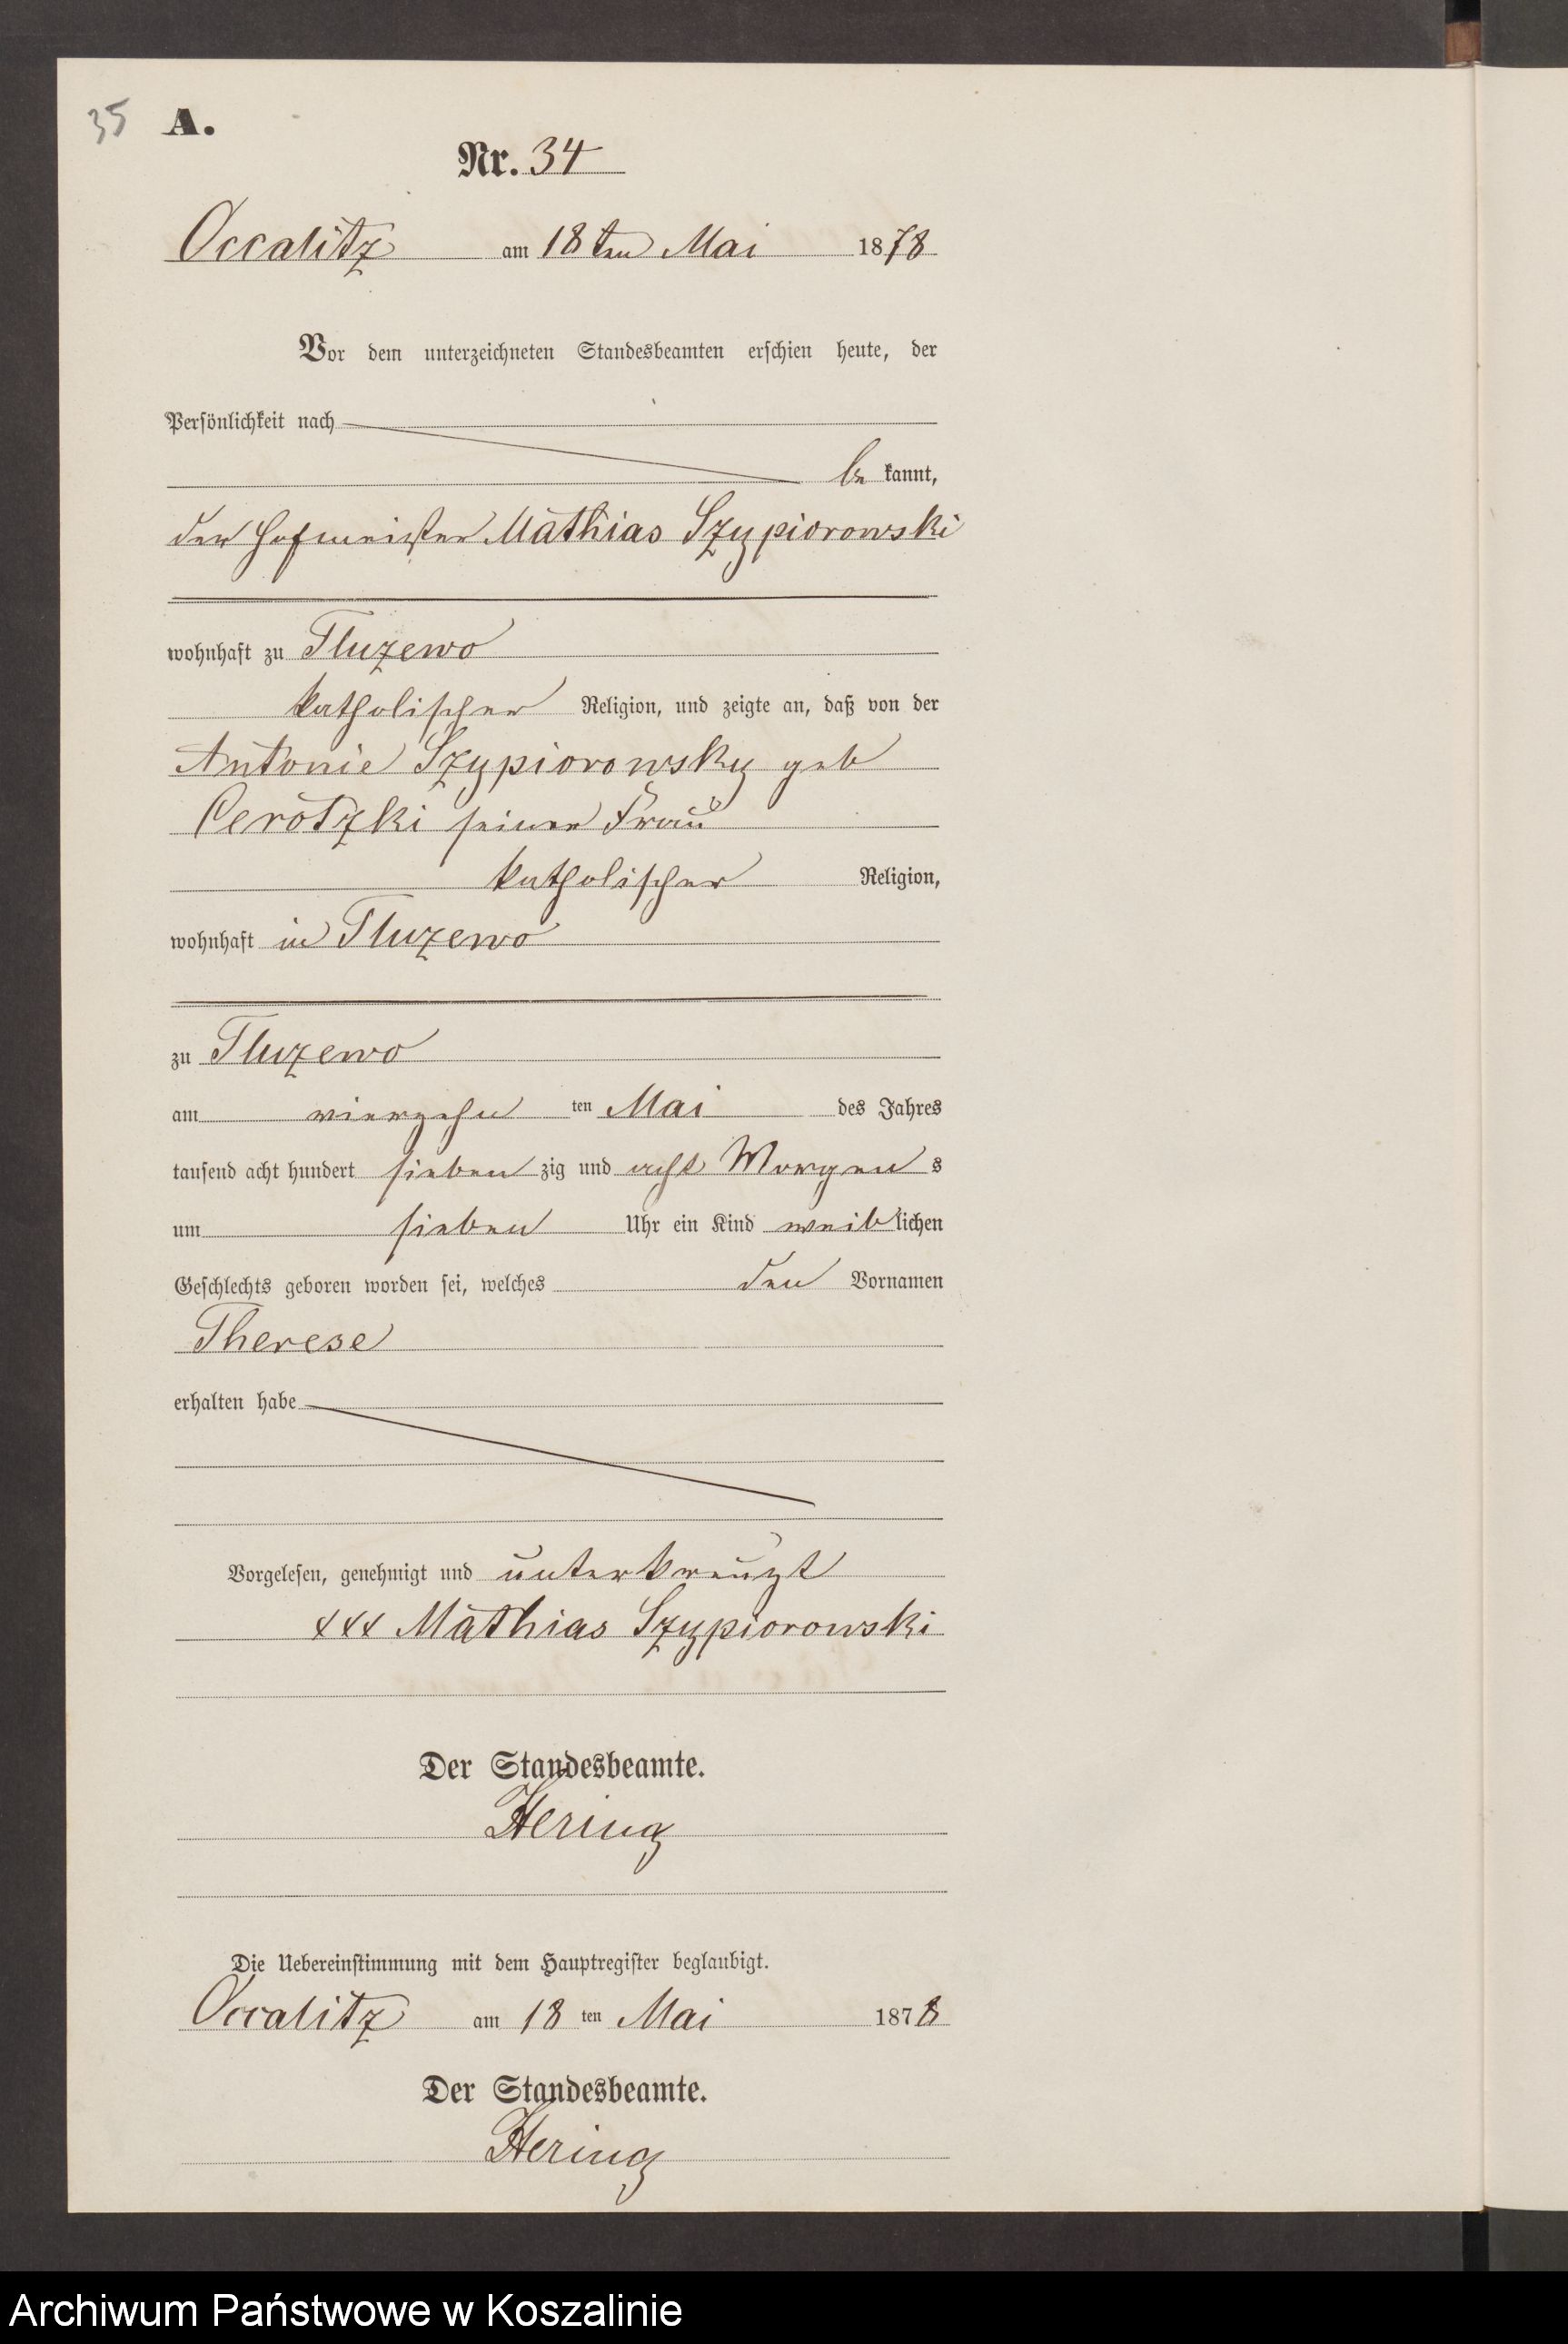 35 A.
Nr. 34
Occalitz am 18ten Mai 1878
Vor dem unterzeichneten Standesbeamten erschien heute, der
Persönlichkeit nach
be kannt,
der Hofmeister Mathias Szypiorowski
wohnhaft zu Tluzewo
katholischer Religion, und zeigte an, daß von der
Antonie Szypiorowsky geb
Cerotzki seiner Frau
katholischer Religion,
wohnhaft in Tluzewo
zu Tluzewo
am vierzehn ten Mai des Jahres
tausend acht hundert sieben zig und acht Morgen s
um sieben Uhr ein Kind weiblichen
Geschlechts geboren worden sei, welches den Vornamen
Therese
erhalten habe
Vorgelesen, genehmigt und unterkreuzt
xxx Mathias Szypiorowski
Der Standesbeamte.
Hering
Die Uebereinstimmung mit dem Hauptregister beglaubigt.
Occalitz am 18 ten Mai 1878
Der Standesbeamte.
Hering
Archiwum Państwowe w Koszalinie